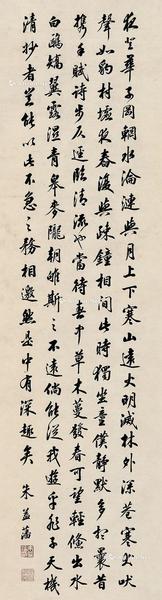 夜登華子岡輞水淪漣與月上下寒山遠火明滅林外深巷寒犬吠
聲如豹村墟夜舂復與疎鐘相間此時獨坐童僕靜默多思曩昔
攜手賦詩步仄逕臨清流也當待春中草木蔓發春可望輕鯈出水
白鷗矯翼露濕青皋麥隴朝雊斯之不遠倘能從我遊乎非子天機
清妙者豈能以此不急之務相邀然是中有深趣矣
朱益藩